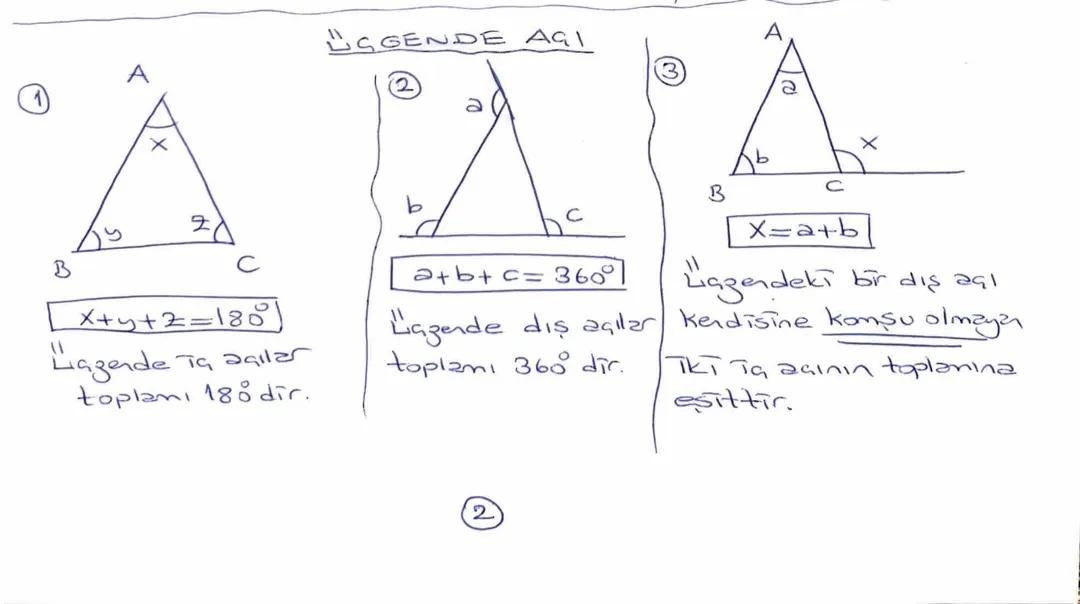 ÜÇGENDE AÇI
1
A
x
y
z
B
C
x+y+z=180°
Üçgende iç açılar
toplamı 180° dir.
2
a
b
c
a+b+c=360°
Üçgende dış açılar
toplamı 360° dir.
3
A
a
b
x
B
C
x=a+b
Üçgendeki bir dış açı
kendisine komşu olmayan
iki iç açının toplamına
eşittir.
2